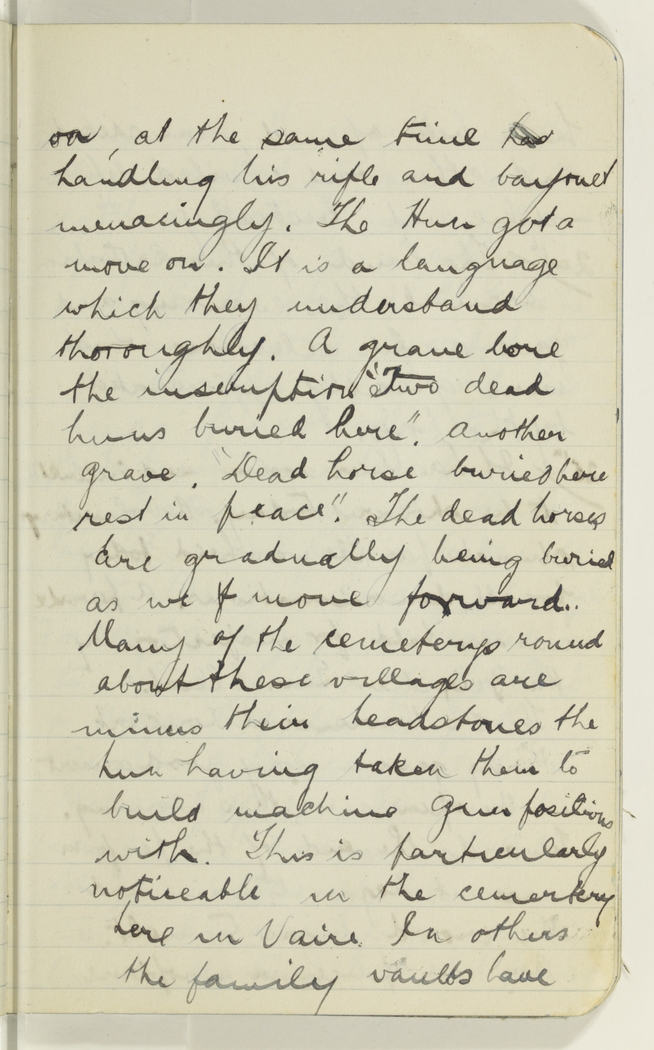 on, at the same time
handling his rifle and bayonet
menacingly. The Hun got a
move on. It is a language
which they understand
thoroughly. A grave bore
the inscription "Two dead
huns buried here". Another
grave. "Dead horse buried here
rest in peace". The dead horses
are gradually being buried
as we move forward.
Many of the cemeterys round
about these villages are
minus their headstones the
hun having taken them to
build machine gun positions
with. This is particularly
noticeable in the cemertery
here in Vaire. In others
the family vaults have